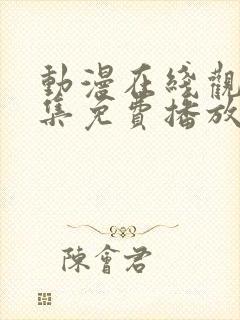 動漫在綫觀
集免費播放
陳會君